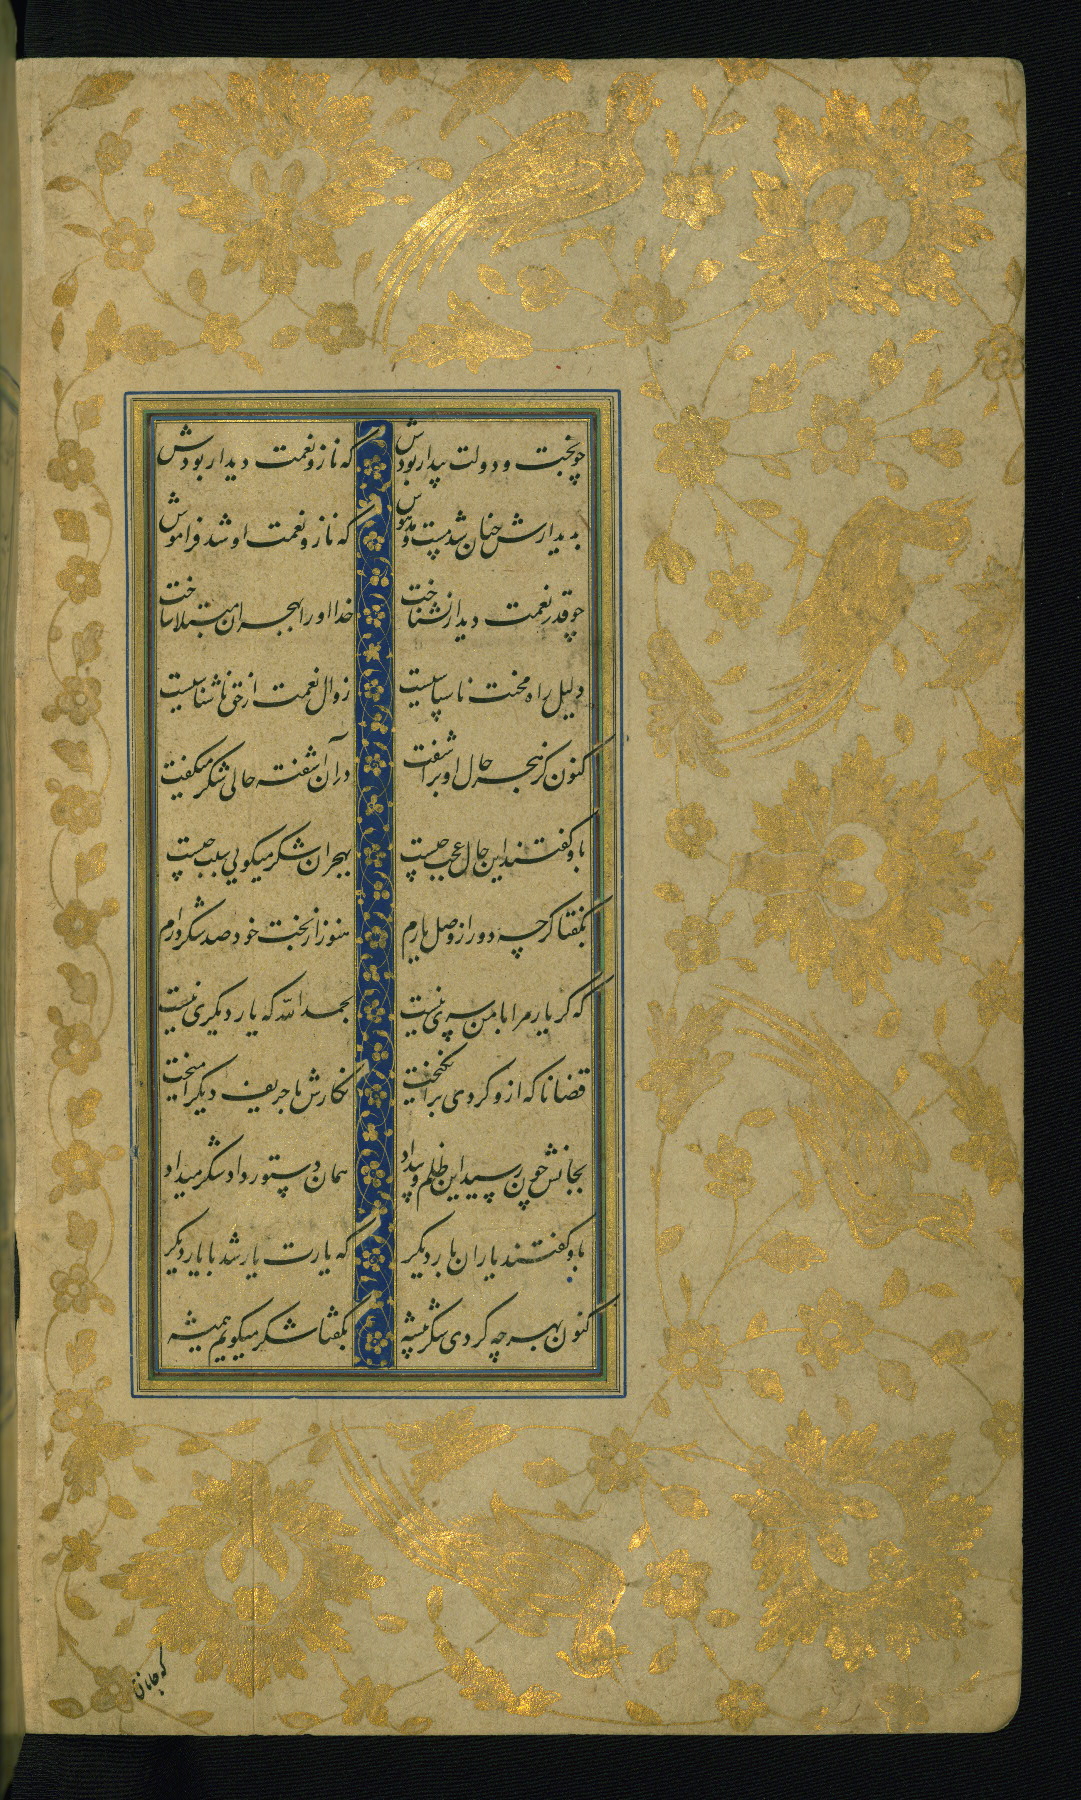 چو بخت و دولت بیدار بودش که ناز و نعمت دیدار بودش
بدیدارش چنان شد مست و مدهوش که ناز و نعمت او شد فراموش
چو قدر نعمت دیدار نشناخت خدا او را بهجران مبتلا ساخت
دلیل راه محنت ناسپاسیست زوال نعمت از حق ناشناسیست
کنون کز هجر حال او برآشفت در آن آشفته حالی شکر میگفت
باو گفتند این حال عجب چیست بهجران شکر میگویی سبب چیست
بگفتا گرچه دور از وصل یارم هنوز از بخت خود صد شکر دارم
که گر یار مرا با من سری نیست بحمد الله که یار دیگری نیست
قضا ناگه ازو گردی برانگیخت نگارش با حریف دیگر آمیخت
بجانش چون رسید این ظلم و بیداد همان دستور داد شکر میداد
باو گفتند یاران بار دیگر که یارت یار شد با یار دیگر
کنون بهر چه کردی شکر پیشه بگفتا شکر میگویم همیشه
که جانان